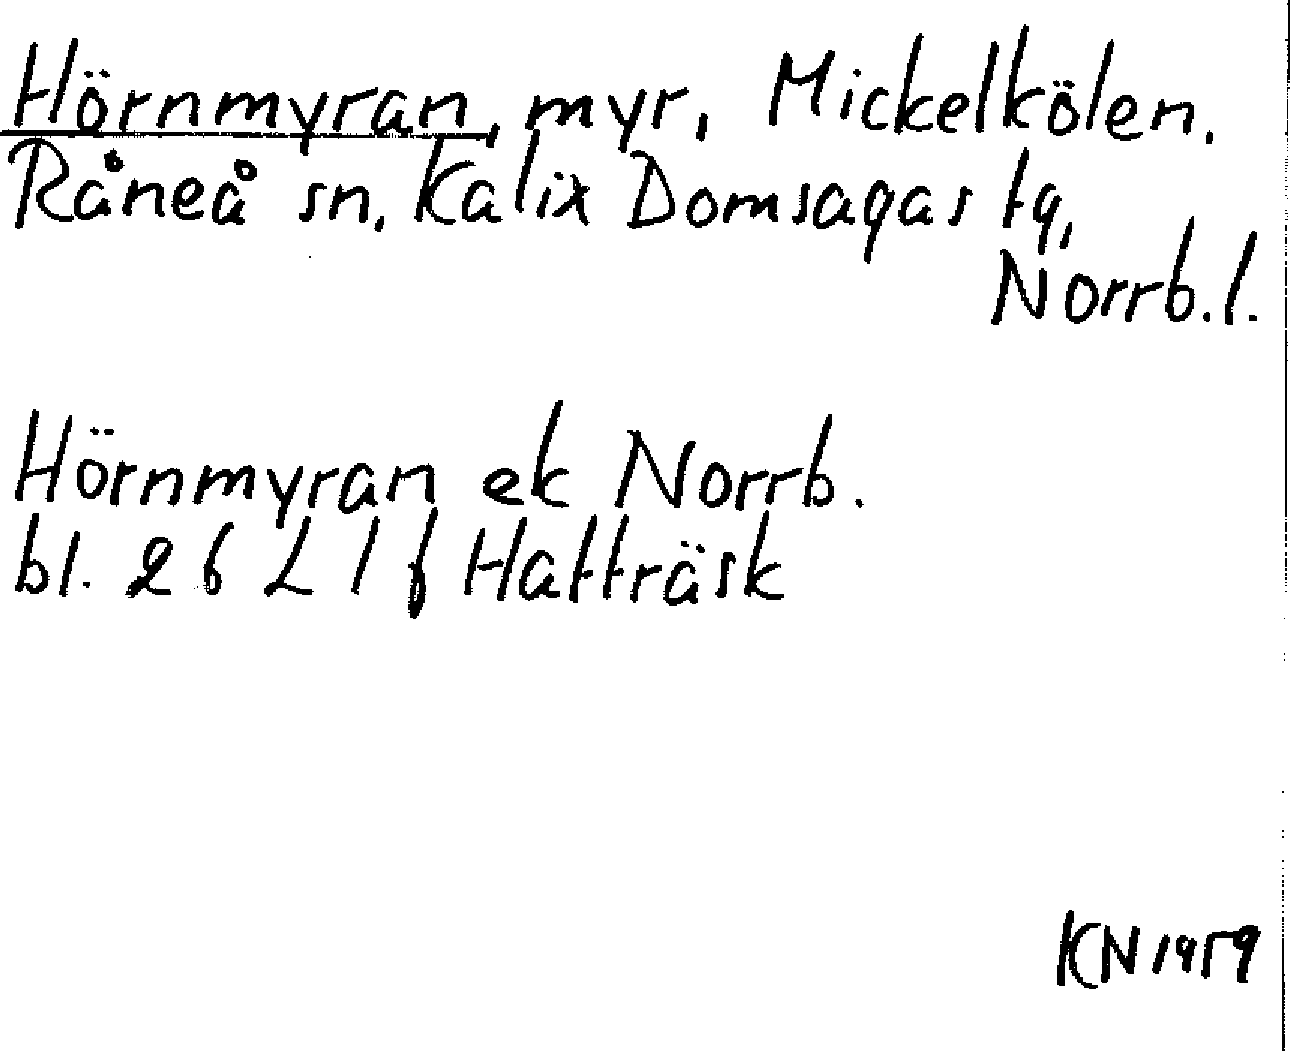 Hörnmyran, myr, Mickelkölen.
Råneå sn. Kalix Domsagas tg,
Norrb. l.
Hörnmyran ek Norrb.
bl. 26 L 1 f Hatträsk
KN 1959